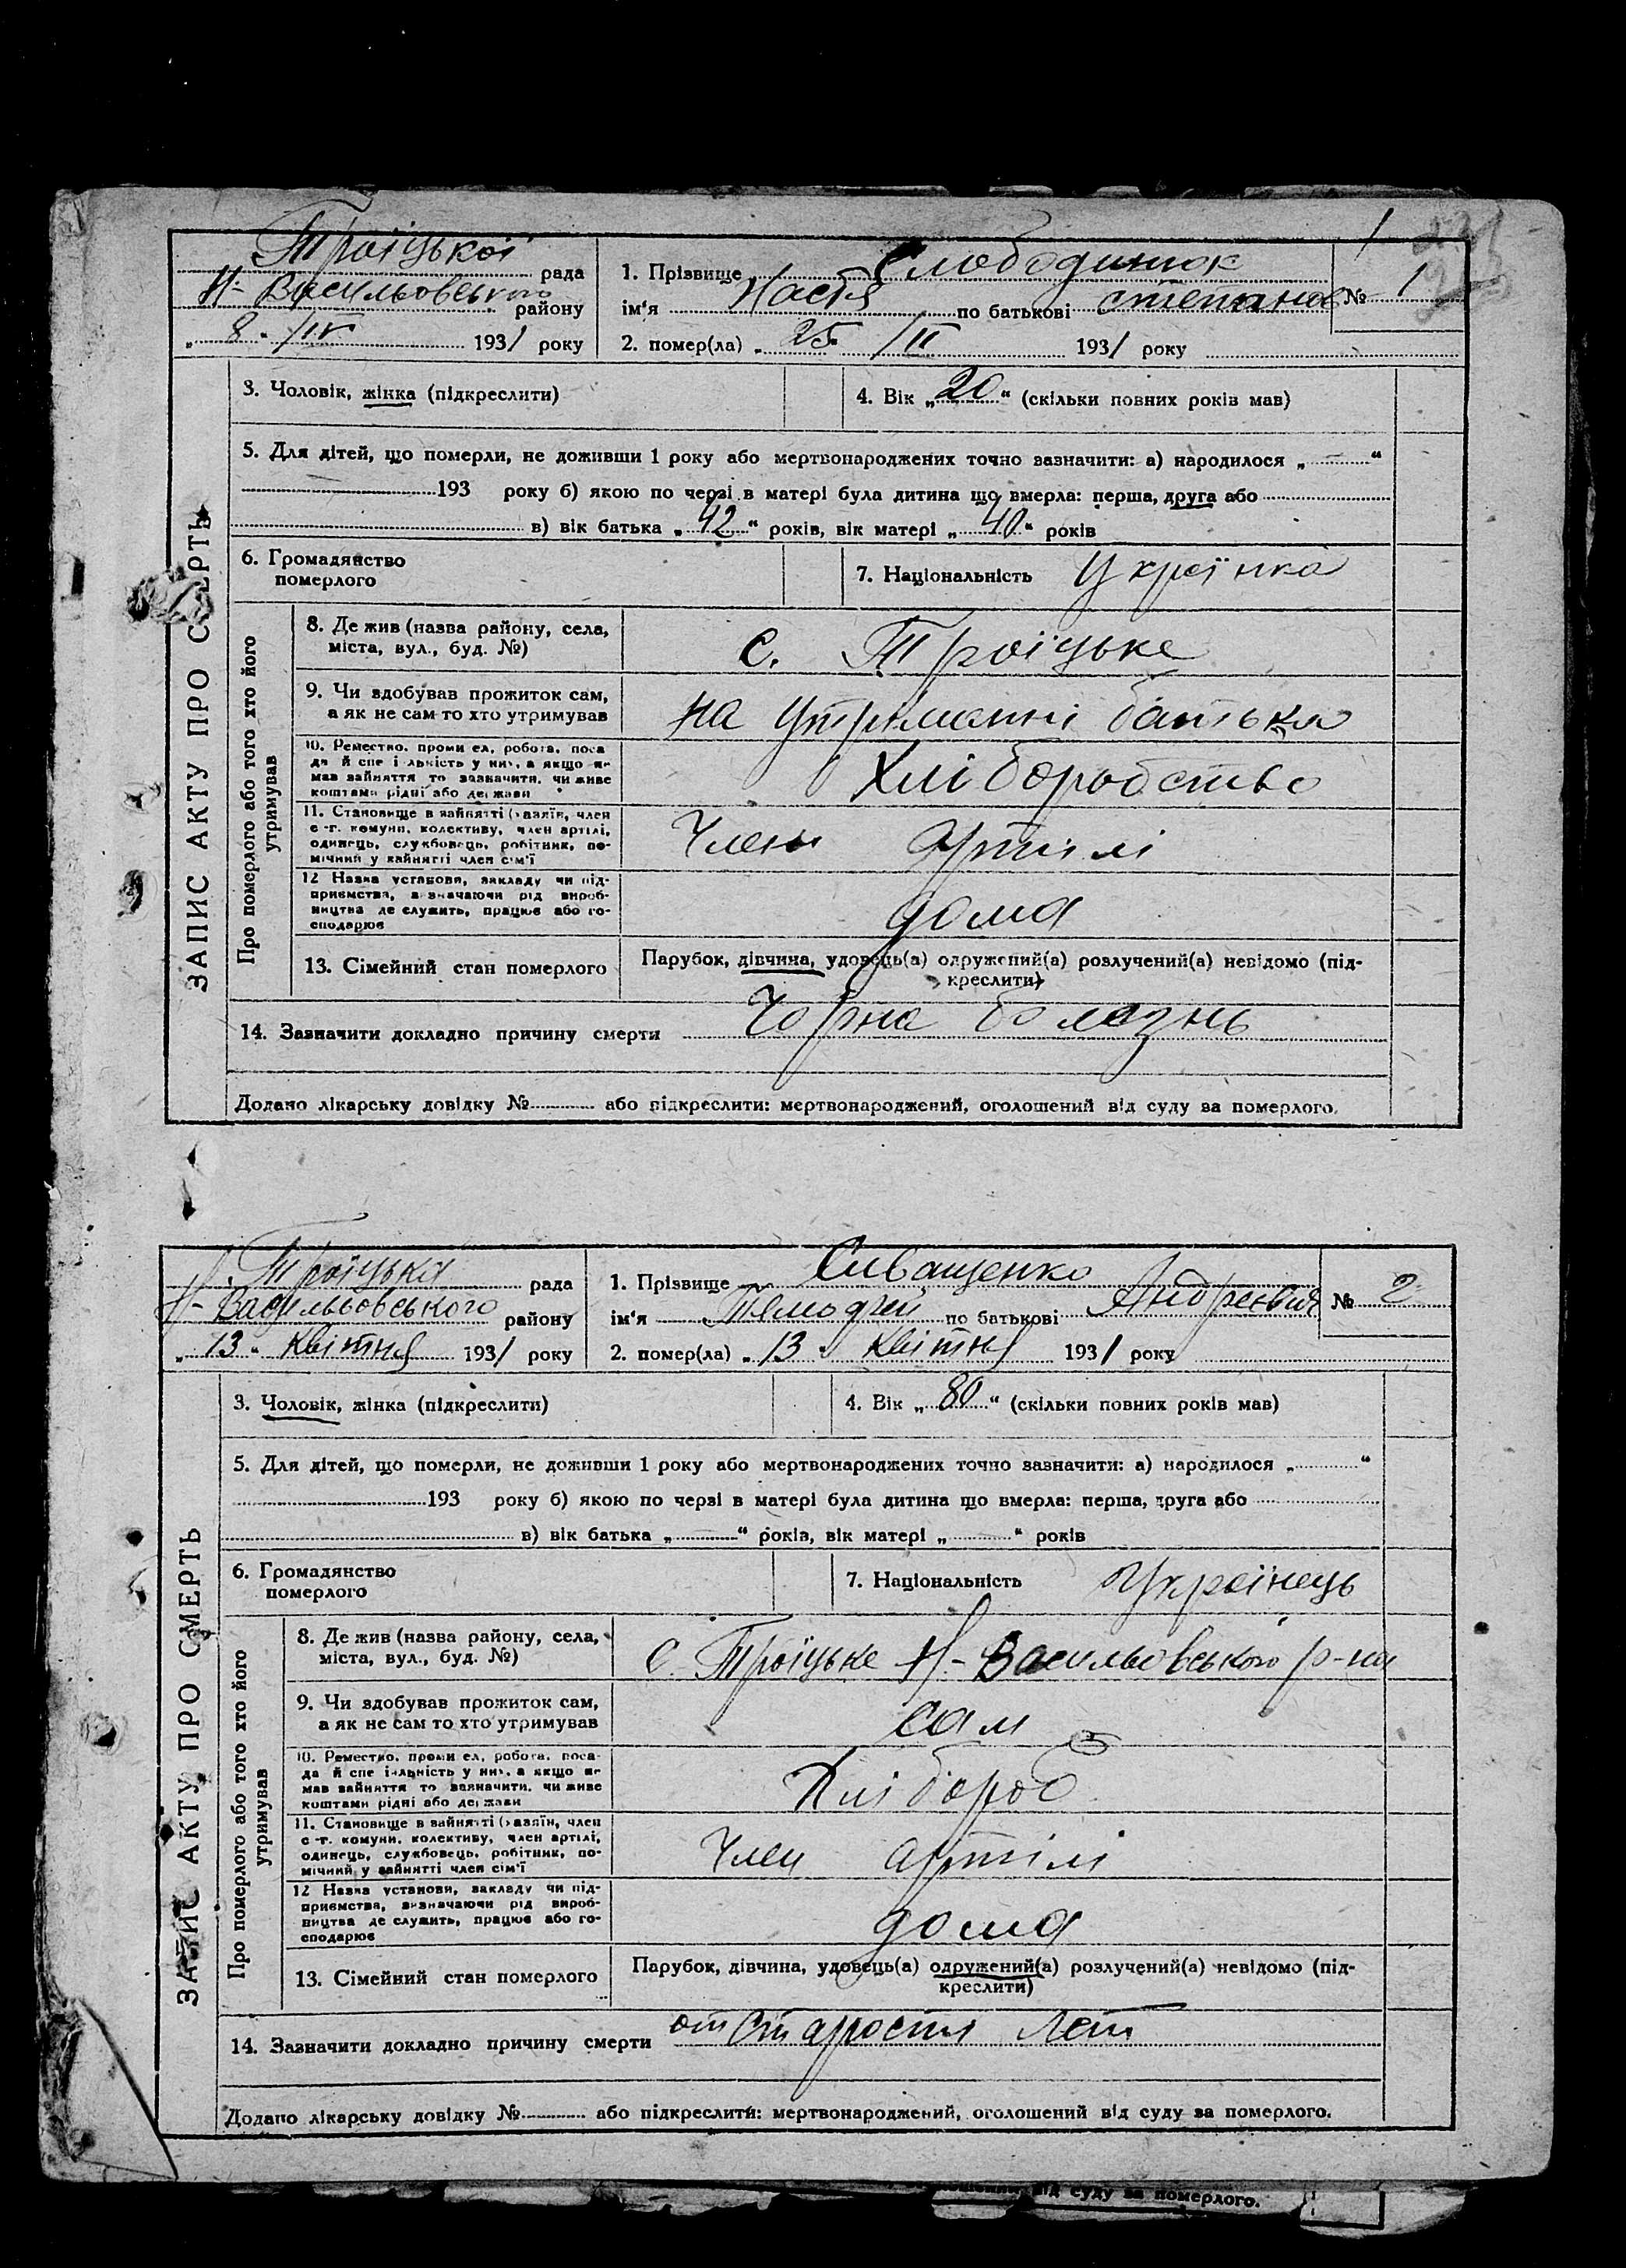 1
Троіцької рада
Н-Васильовського району
„ 8 “ /IV 1931 року
1. Прізвище Слободинюк
ім'я Настя по батькові степанов № 1
2. помер(ла) „ 25 “ /II 1931 року
ЗАПИС АКТУ ПРО СМЕРТЬ
3. Чоловік, жінка (підкреслити)
4. Вік „ 20 “ (скільки повних років мав)
5. Для дітей, що померли, не доживши 1 року або мертвонароджених точно зазначити: а) народилося „ “
193 року б) якою по черзі в матері була дитина що вмерла: перша, друга або
в) вік батька „ 42 “ років, вік матері „ 40 “ років
6. Громадянство
померлого
7. Національність Українка
Про померлого або того хто його
утримував
8. Де жив (назва району, села,
міста, вул., буд. №)
с. Троїцьке
9. Чи здобував прожиток сам,
а як не сам то хто утримував
на утриманні батька
10. Ремество, проми ел, робота, поса
да й спе і льність у них, а якщо не
мав зайняття то зазначити, чи живе
коштами рідні або держави
Хліборобство
11. Становище в зайнятті (хазяїн, член
с-г. комуни, колективу, член артілі,
одинець, службовець, робітник, по-
мічний у зайнятті член сім'ї
Член Артілі
12 Назва установи, закладу чи під-
приємства, визначаючи рід вироб-
ництва де служить, працює або го-
сподарює
дома
13. Сімейний стан померлого
Парубок, дівчина, удовець(а) одружений(а) розлучений(а) невідомо (під-
креслити)
14. Зазначити докладно причину смерти Чорна болезнь
Додано лікарську довідку № або підкреслити: мертвонароджений, оголошений від суду за померлого.
Троїцька рада
Н-Васильовського району
„ 13 “ Квітня 1931 року
1. Прізвище Сиващенко
ім'я Темофей по батькові Андреєвич № 2
2. помер(ла) „ 13 “ Квітня 1931 року
ЗАПИС АКТУ ПРО СМЕРТЬ
3. Чоловік, жінка (підкреслити)
4. Вік „ 80 “ (скільки повних років мав)
5. Для дітей, що померли, не доживши 1 року або мертвонароджених точно зазначити: а) народилося „ “
193 року б) якою по черзі в матері була дитина що вмерла: перша, друга або
в) вік батька „ “ років, вік матері „ “ років
6. Громадянство
померлого
7. Національність Українець
Про померлого або того хто його
утримував
8. Де жив (назва району, села,
міста, вул., буд. №)
с. Троїцьке Н-Васильовського р-на
9. Чи здобував прожиток сам,
а як не сам то хто утримував
сам
10. Ремество, проми ел, робота, поса-
да й спе іальність у них, а якщо не
мав зайняття то зазначити, чи живе
коштами рідні або держави
Хлібороб
11. Становище в зайнятті (хазяїн, член
с-г. комуни, колективу, член артілі,
одинець, службовець, робітник, по-
мічний у зайнятті член сім'ї
Член артілі
12 Назва установи, закладу чи під-
приємства, визначаючи рід вироб-
ництва де служить, працює або го-
сподарює
дома
13. Сімейний стан померлого
Парубок, дівчина, удовець(а) одружений(а) розлучений(а) невідомо (під-
креслити)
14. Зазначити докладно причину смерти от старости лет
Додано лікарську довідку № або підкреслити: мертвонароджений, оголошений від суду за померлого.
від суду за померлого.